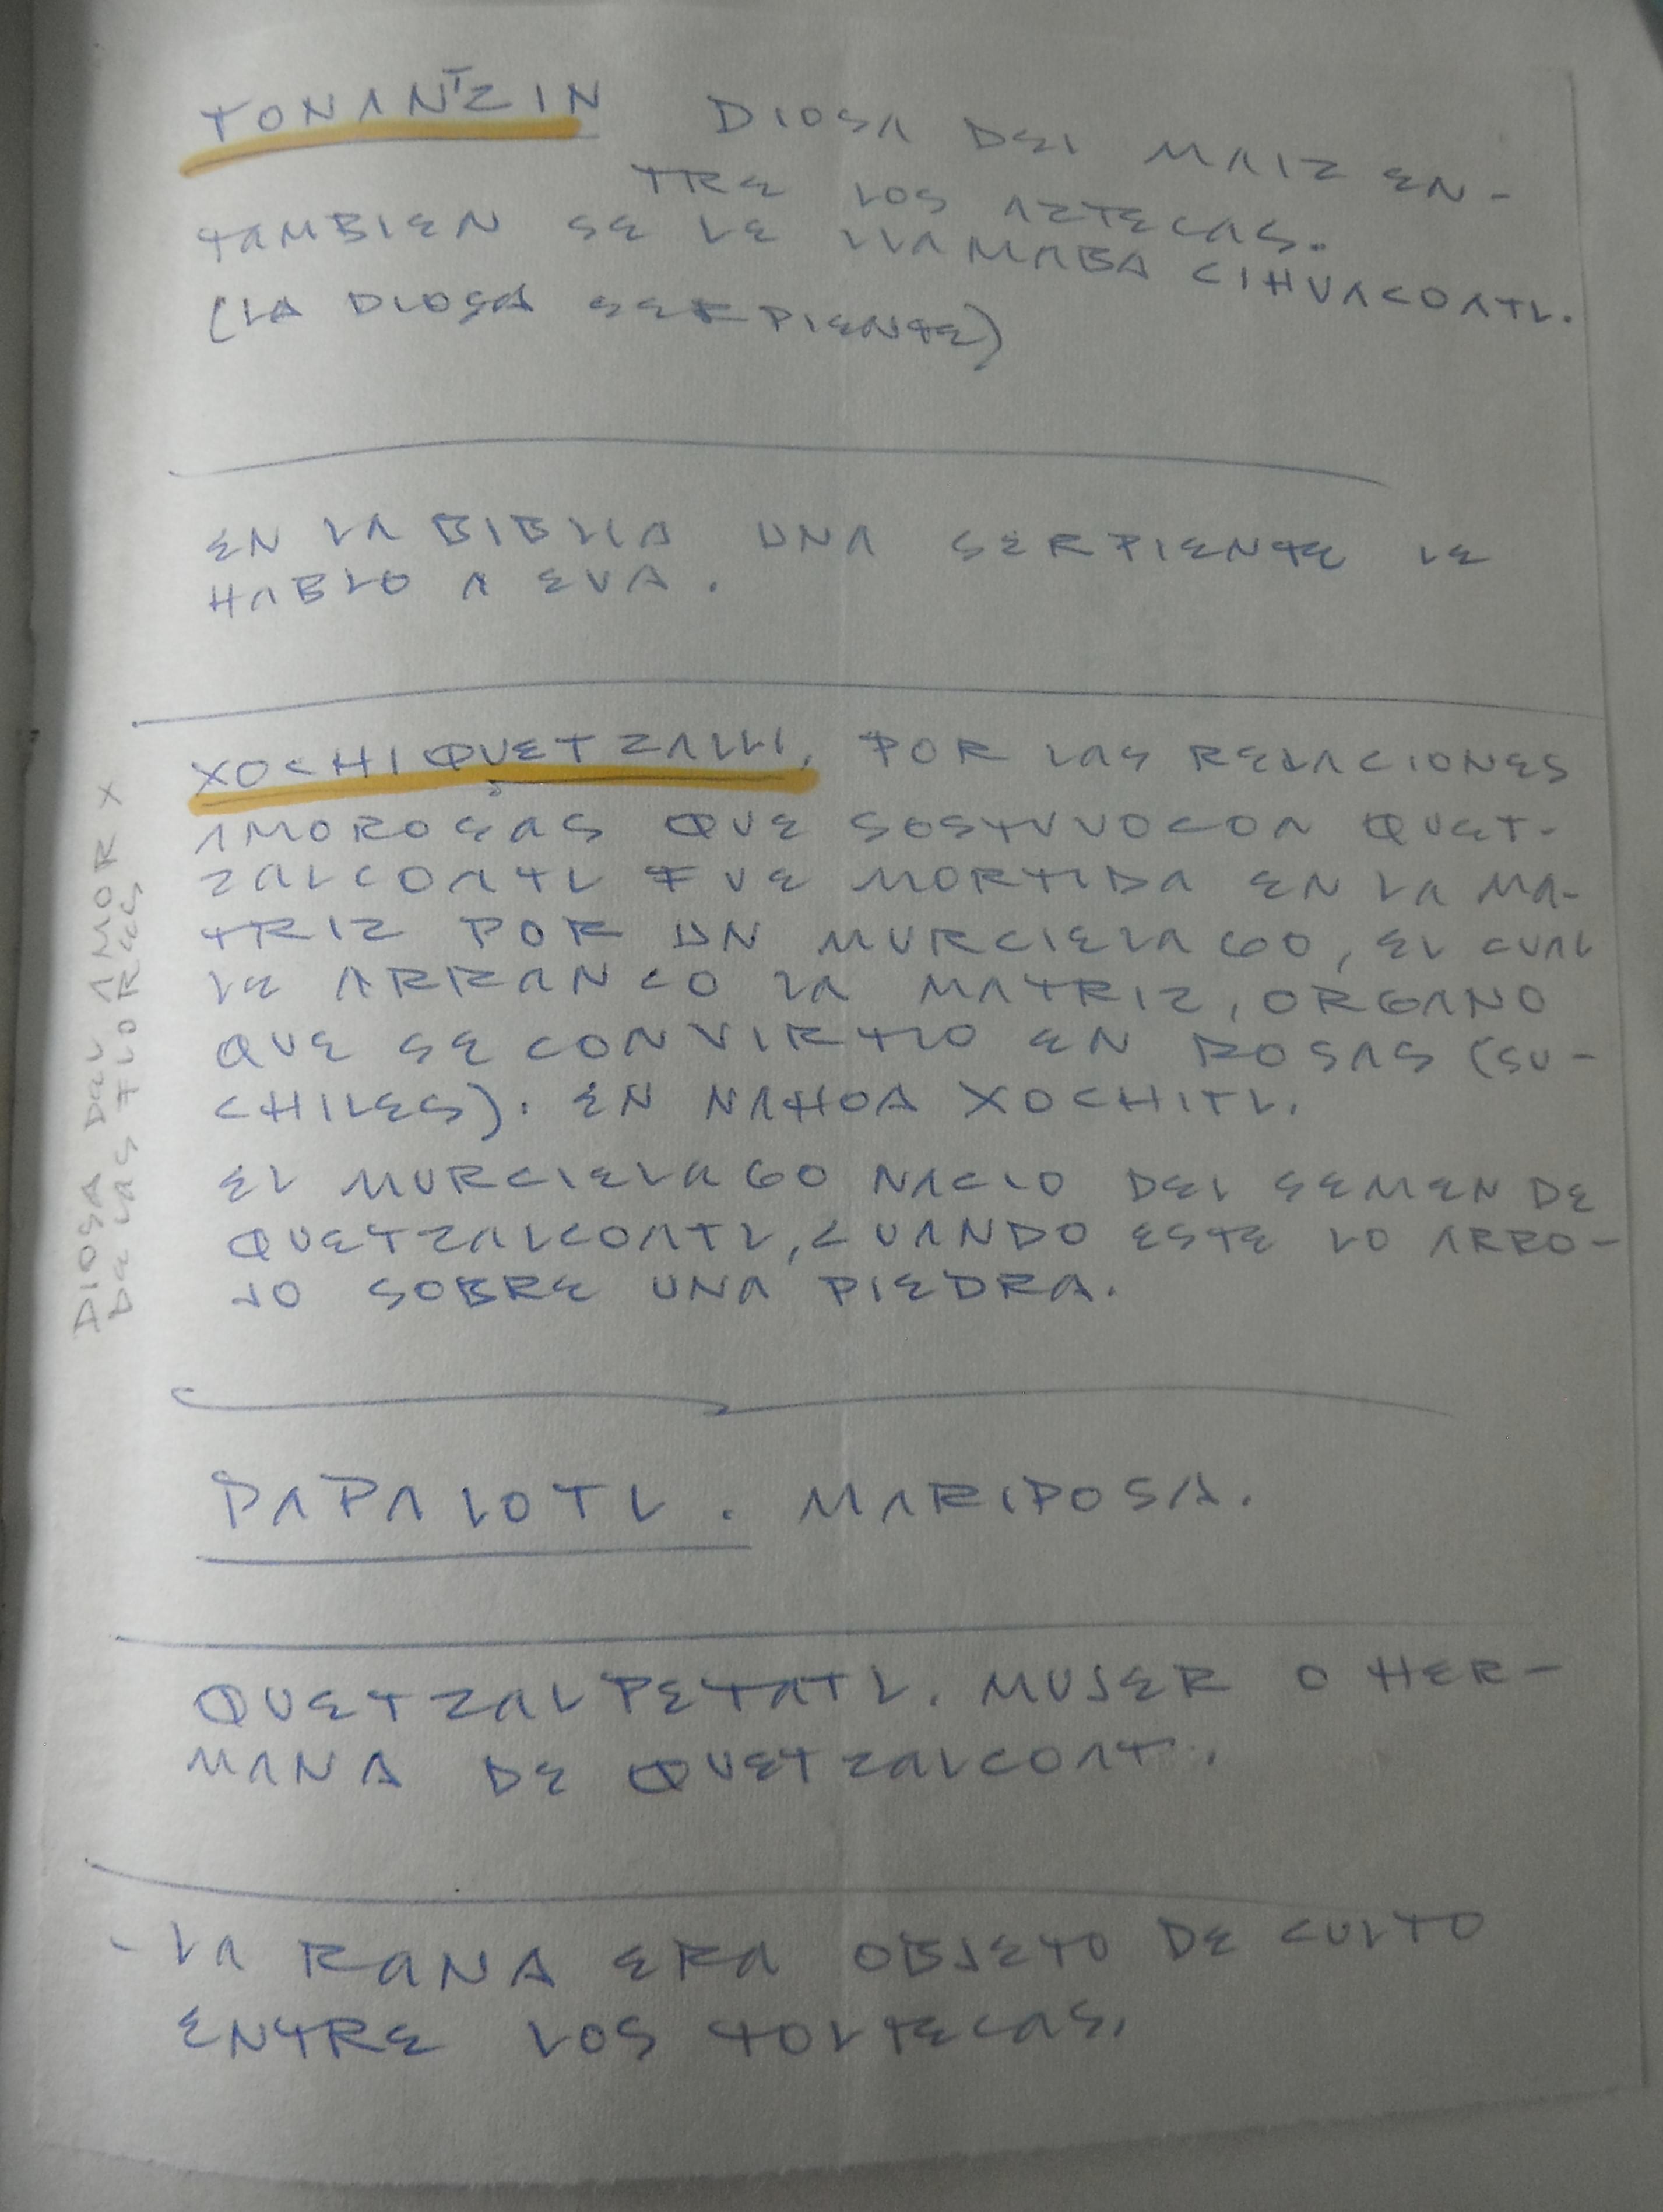 TONANTZIN DIOSA DEL MAIZ EN-
TRE LOS AZTECAS.
TAMBIEN SE LE LLAMABA CIHUACOATL.
(LA DIOSA SERPIENTE)
EN LA BIBLIA UNA SERPIENTE LE
HABLO A EVA.
XOCHIQUETZALLI, POR LAS RELACIONES
AMOROSAS QUE SOSTUVO CON QUET-
ZALCOATL FUE MORTIDA EN LA MA-
TRIZ POR UN MURCIELAGO, EL CUAL
LE ARRANCO LA MATRIZ, ORGANO
QUE SE CONVIRTIO EN ROSAS (SU-
CHILES). EN NAHOA XOCHITL.
EL MURCIELAGO NACIO DEL SEMEN DE
QUETZALCOATL, CUANDO ESTE LO ARRO-
JO SOBRE UNA PIEDRA.
DIOSA DEL AMOR X
DE LAS FLORES
PAPALOTL. MARIPOSA.
QUETZALPETATL. MUJER O HER-
MANA DE QUETZALCOAT.
- LA RANA ERA OBJETO DE CULTO
ENTRE LOS TOLTECAS.